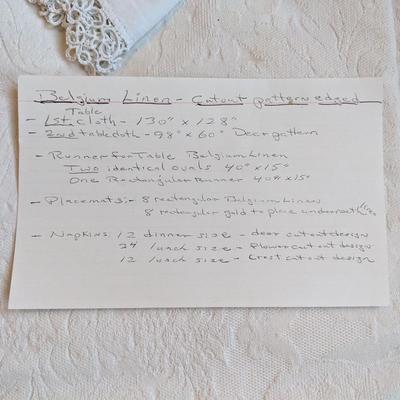 Belgium Linen - Cutout pattern edged
Table
- 1st. cloth - 130" x 128"
- 2nd tablecloth - 98" x 60" Deer pattern
- Runner for Table Belgium Linen
Two identical ovals 40" x 15"
One Rectangular Runner 40" x 15"
- Placemats: - 8 rectangular Belgium Linen
8 rectangular gold to place underneath
- Napkins: 12 dinner size - deer cutout design
24 lunch size - Flower cutout design
12 lunch size - Crest cutout design